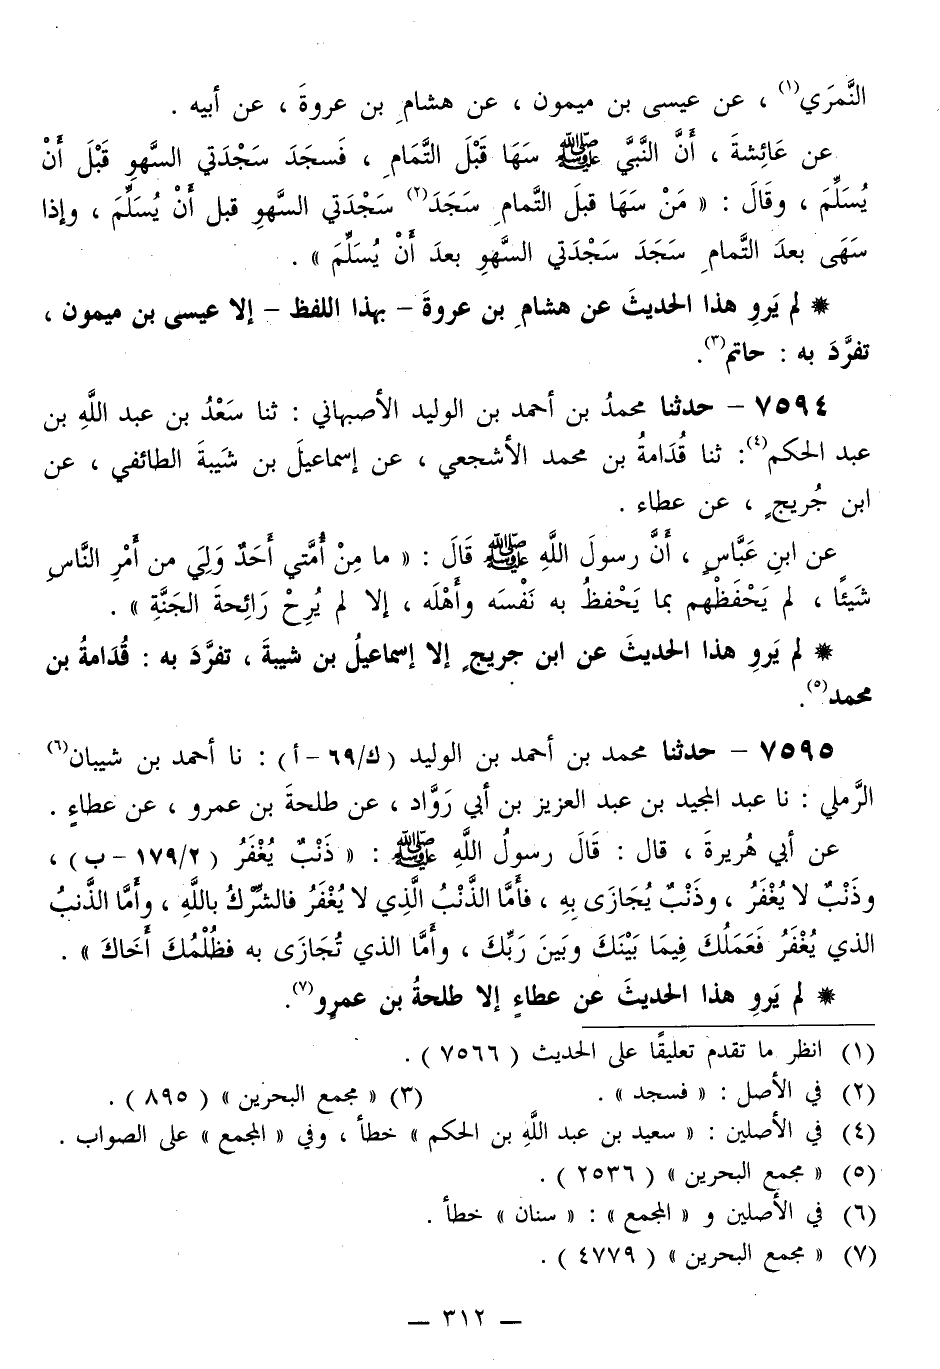 النَّمرَي(١) ، عن عيسى بن ميمون ، عن هشامِ بن عروةَ ، عن أبيه .
عن عَائِشةَ ، أَنَّ النَّبيَّ ﷺ سَهَا قَبْلَ التَّمَامِ ، فَسجَدَ سَجْدَتي السَّهوِ قَبْلَ أَنْ
يُسَلِّمَ ، وقَالَ : « مَنْ سَهَا قبلَ التَّمامِ سَجَدَ(٢) سَجْدَتي السَّهوِ قبل أَنْ يُسَلِّمَ ، وإذا
سَهَى بعدَ التَّمامِ سَجَدَ سَجْدَتي السَّهوِ بعدَ أَنْ يُسَلِّمَ » .
* لم يَروِ هذا الحديثَ عن هشامِ بن عروةَ – بهذا اللفظ – إلا عيسى بن ميمون ،
تفرَّدَ به : حاتم(٣).
٧٥٩٤ – حدثنا محمدُ بن أحمد بن الوليد الأصبهاني : ثنا سَعْدُ بن عبد اللَّهِ بن
عبد الحكم(٤): ثنا قُدَامةُ بن محمد الأشجعي ، عن إسماعيلَ بن شَيبةَ الطائفي ، عن
ابن جُريجٍ ، عن عطاء .
عن ابنِ عَبَّاسٍ ، أَنَّ رسولَ اللَّهِ ﷺ قَالَ : « ما مِنْ أُمَّتي أَحَدٌ وَلِيَ من أَمْرِ النَّاسِ
شَيئًا ، لم يَحْفَظْهم بما يَحْفظُ به نَفْسَه وأَهْلَه ، إلا لم يُرِحْ رَائِحةَ الجَنَّةِ » .
* لم يَروِ هذا الحديثَ عن ابن جريجٍ إلا إسماعيلُ بن شيبةَ ، تفرَّدَ به : قُدَامةُ بن
محمد(٥).
٧٥٩٥ – حدثنا محمد بن أحمد بن الوليد (ك/٦٩ – أ) : نا أحمد بن شيبان(٦)
الرَّملي : نا عبد المجيد بن عبد العزيز بن أبي رَوَّاد ، عن طلحةَ بن عمرو ، عن عطاءٍ .
عن أبي هُريرةَ ، قال : قَالَ رسولُ اللَّهِ ﷺ : « ذَنْبٌ يُغْفَرُ (١٧٩/٢ – ب) ،
وذَنْبٌ لا يُغْفَرُ ، وذَنْبٌ يُجَازَى بِهِ ، فأَمَّا الذَّنْبُ الَّذِي لا يُغْفَرُ فالشِّرْكُ باللَّهِ ، وأَمَّا الذَّنبُ
الذي يُغْفَرُ فَعَمَلُكَ فِيمَا بَيْنَكَ وبَينَ رَبِّكَ ، وأَمَّا الذي تُجَازَى به فظُلْمُكَ أَخَاكَ » .
* لم يَروِ هذا الحديثَ عن عطاءٍ إلا طلحةُ بن عمرٍو(٧).
(١) انظر ما تقدم تعليقًا على الحديث ( ٧٥٦٦ ) .
(٢) في الأصل : « فسجد » . (٣) « مجمع البحرين » ( ٨٩٥ ) .
(٤) في الأصلين : « سعيد بن عبد اللَّهِ بن الحكم » خطأ ، وفي « المجمع » على الصواب .
(٥) « مجمع البحرين » ( ٢٥٣٦ ) .
(٦) في الأصلين و « المجمع » : « سنان » خطأ .
(٧) « مجمع البحرين » ( ٤٧٧٩ ) .
– ٣١٢ –